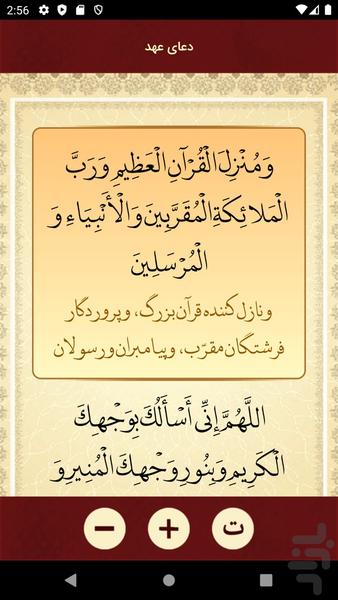 2:56
دعای عهد
وَمُنْزِلَ الْقُرْآنِ الْعَظِيمِ وَرَبَّ
الْمَلائِكَةِ الْمُقَرَّبِينَ وَالْأَنْبِيَاءِ وَ
الْمُرْسَلِينَ
و نازل کننده قرآن بزرگ، و پروردگار
فرشتگان مقرّب، و پیامبران و رسولان
اللَّهُمَّ إِنِّي أَسْأَلُكَ بِوَجْهِكَ
الْكَرِيمِ وَبِنُورِ وَجْهِكَ الْمُنِيرِ وَ
− + ت
بازار